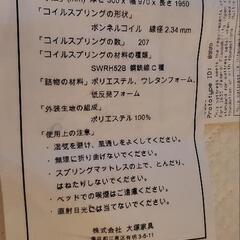 (mm) 厚さ300 x 幅970 x 長さ1950
「コイルスプリングの形状」
ボンネルコイル 線径 2.34 mm
「コイルスプリングの数」 207
「コイルスプリングの材料の種類」
SWRH52B 鋼線線C種
「詰物の材料」 ポリエステル、ウレタンフォーム、
低反発フォーム
「外装生地の組成」
ポリエステル 100%
「使用上の注意」
・ 湿気を避け、風通しをよくしてください。
・ 無理に折り曲げないでください。
・ スプリングマットレスの上で、とんだり、
はねたりしないでください。
・ ベッドでの喫煙はご遠慮ください。
・ 直射日光には当てないでください。
株式会社 大塚家具
3-6-11
Prototype ID: